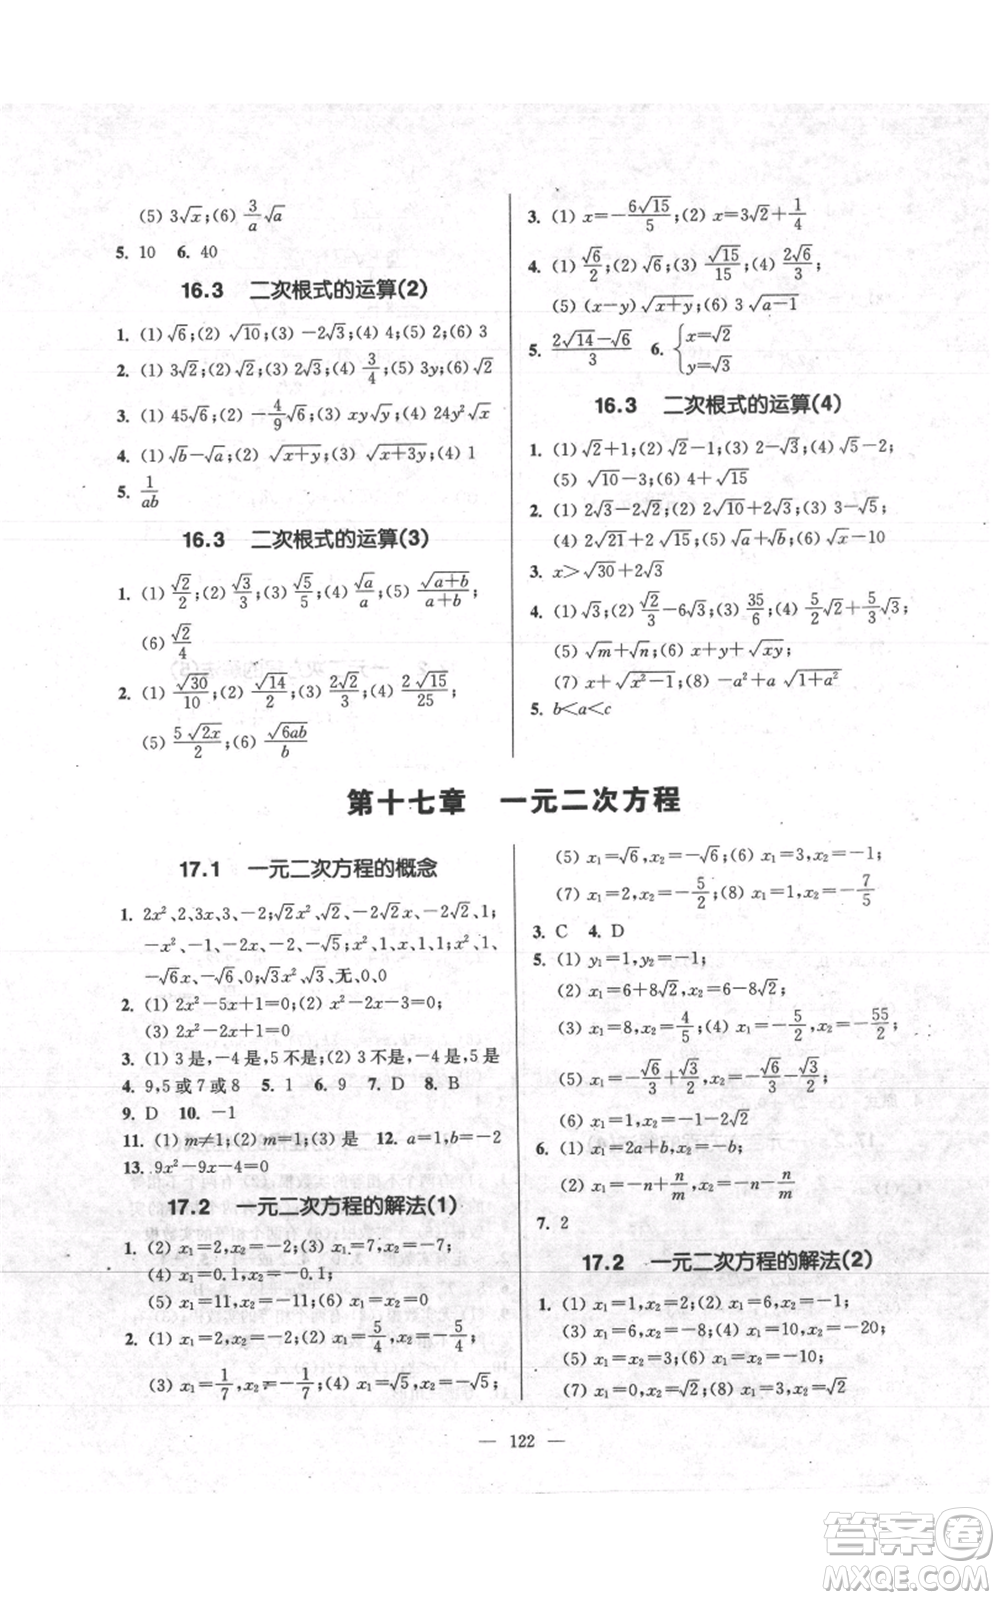 (5) 3√x;(6) 3/a √a
5. 10 6. 40
16.3 二次根式的运算(2)
1. (1) √6;(2) √10;(3) -2√3;(4) 4;(5) 2;(6) 3
2. (1) 3√2;(2) 2√3;(3) 2√3;(4) 3/4;(5) 3y;(6) 4√2
3. (1) 45√6;(2) -4/9√6;(3) xy√y;(4) 24y²√x
4. (1) √b-√a;(2) √(x+y);(3) √(x+3y);(4) 1
5. 1/ab
16.3 二次根式的运算(3)
1. (1) √2/2;(2) √3/3;(3) √5/5;(4) √a/a;(5) √(a+b)/(a+b);
(6) √2/4
2. (1) √30/10;(2) √14/2;(3) 2√2/3;(4) 2√15/25;
(5) 5√(2x)/2;(6) √(6ab)/b
3. (1) x=-6√15/5;(2) x=3√2+1/4
4. (1) √6/2;(2) √6;(3) √15/15;(4) 2√6/3;
(5) (x-y)√(x+y);(6) 3√(a-1)
5. (2√14-√6)/3 6. {x=√2
y=√3
16.3 二次根式的运算(4)
1. (1) √2+1;(2) √2-1;(3) 2-√3;(4) √5-2;
(5) √10-3;(6) 4+√15
2. (1) 2√3-2√2;(2) 2√10+2√3;(3) 3-√5;
(4) 2√21+2√15;(5) √a+√b;(6) √x-10
3. x>√30+2√3
4. (1) √3;(2) √2/3-6√3;(3) 35/6;(4) 5/2√2+5/3√3;
(5) √m+√n;(6) x+y+√(xy);
(7) x+√(x²-1);(8) -a²+a√(1+a²)
5. b<a<c
第十七章 一元二次方程
17.1 一元二次方程的概念
1. 2x²、2、3x、3、-2;√2x²、√2、-2√2x、-2√2、1;
-x²、-1、-2x、-2、√5;x²、1、x、1、√2;x²、1、
-√6x、-√6、0;√3x²、√3、无、0、0
2. (1) 2x²-5x+1=0;(2) x²-2x-3=0;
(3) 2x²-√2x+1=0
3. (1) 3是,-4是,5不是;(2) 3是,-4是,5是
4. 9,5或7或8 5. 1 6. 9 7. D 8. B
9. D 10. -1
11. (1) m≠1;(2) m=1;(3) 是 12. a=1,b=-2
13. 9x²-9x-4=0
17.2 一元二次方程的解法(1)
1. (2) x₁=2,x₂=-2;(3) x₁=7,x₂=-7;
(4) x₁=0.1,x₂=-0.1;
(5) x₁=11,x₂=-11;(6) x₁=x₂=0
2. (1) x₁=2,x₂=-2;(2) x₁=5/4,x₂=-5/4;
(3) x₁=1/7,x₂=-1/7;(4) x₁=√5,x₂=-√5;
(5) x₁=√6,x₂=-√6;(6) x₁=3,x₂=-1;
(7) x₁=2,x₂=-5/2;(8) x₁=1,x₂=-7/5
3. C 4. D
5. (1) y₁=1,y₂=-5;
(2) x₁=6+8√2,x₂=6-8√2;
(3) x₁=8,x₂=4/5;(4) x₁=-5/2,x₂=-55/2;
(5) x₁=√6/3+√3/2,x₂=-√6/3-√3/2;
(6) x₁=1,x₂=-1-2√2
6. (1) x₁=2a+b,x₂=-b;
(2) x₁=-n+n/m,x₂=-n-n/m
7. 2
17.2 一元二次方程的解法(2)
1. (1) x₁=1,x₂=2;(2) x₁=6,x₂=-1;
(3) x₁=6,x₂=-8;(4) x₁=10,x₂=-20;
(5) x₁=x₂=3;(6) x₁=x₂=-10;
(7) x₁=0,x₂=√2;(8) x₁=3,x₂=√2
— 122 —
答案圈
MXQE.COM